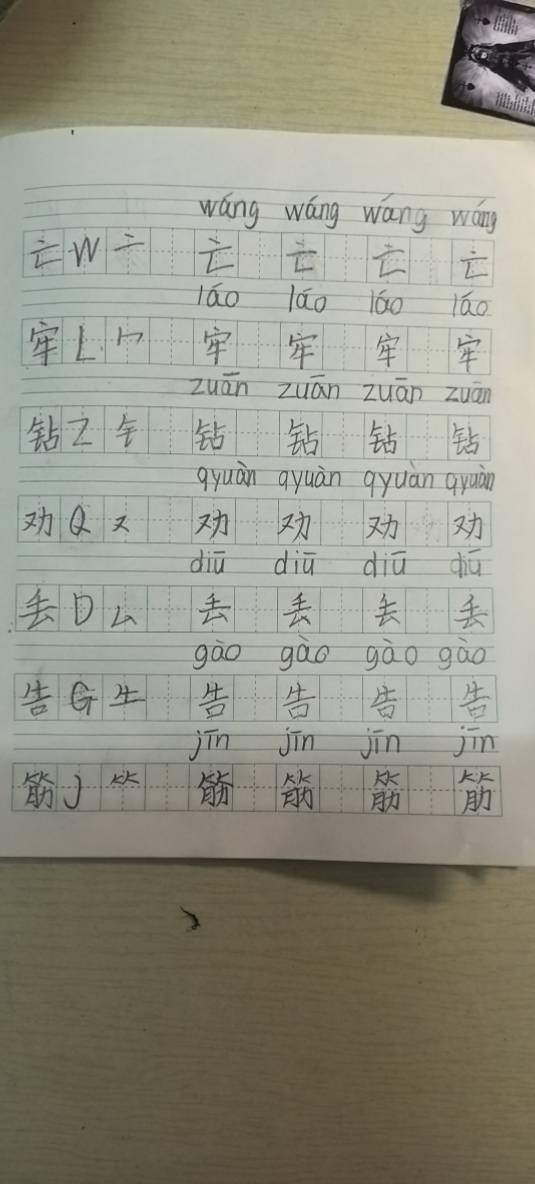 wáng wáng wáng wáng
亡 W 亠 亡 亡 亡 亡
láo láo láo láo
牢 L 宀 牢 牢 牢 牢
zuān zuān zuān zuān
钻 Z 钅 钻 钻 钻 钻
qyuàn qyuàn qyuàn qyuàn
劝 Q 又 劝 劝 劝 劝
diū diū diū diū
丢 D 厶 丢 丢 丢 丢
gào gào gào gào
告 G 牛 告 告 告 告
jīn jīn jīn jīn
筋 J ⺮ 筋 筋 筋 筋